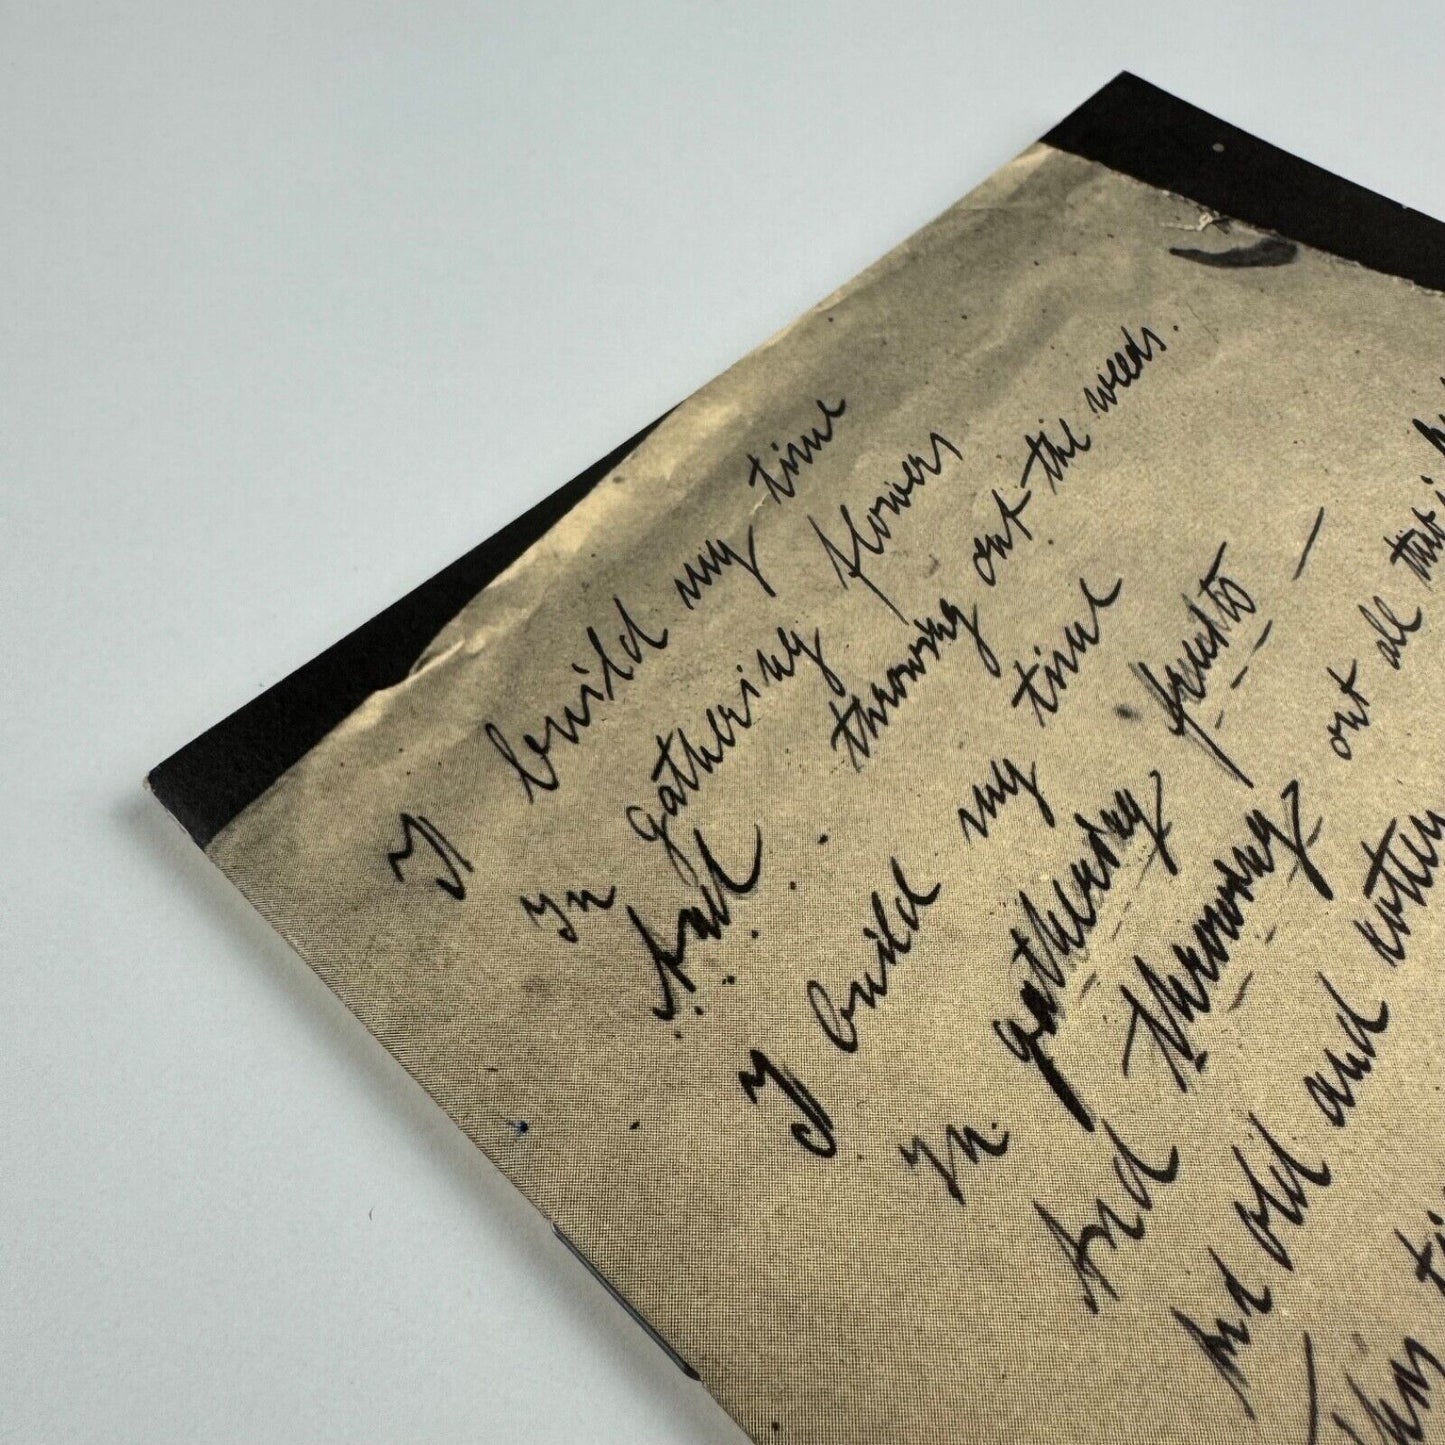 I build my time
In gathering flowers
And throwing out the weeds.
I build my time
In gathering fruits —
And throwing out all that is
And old and rotten
time
This